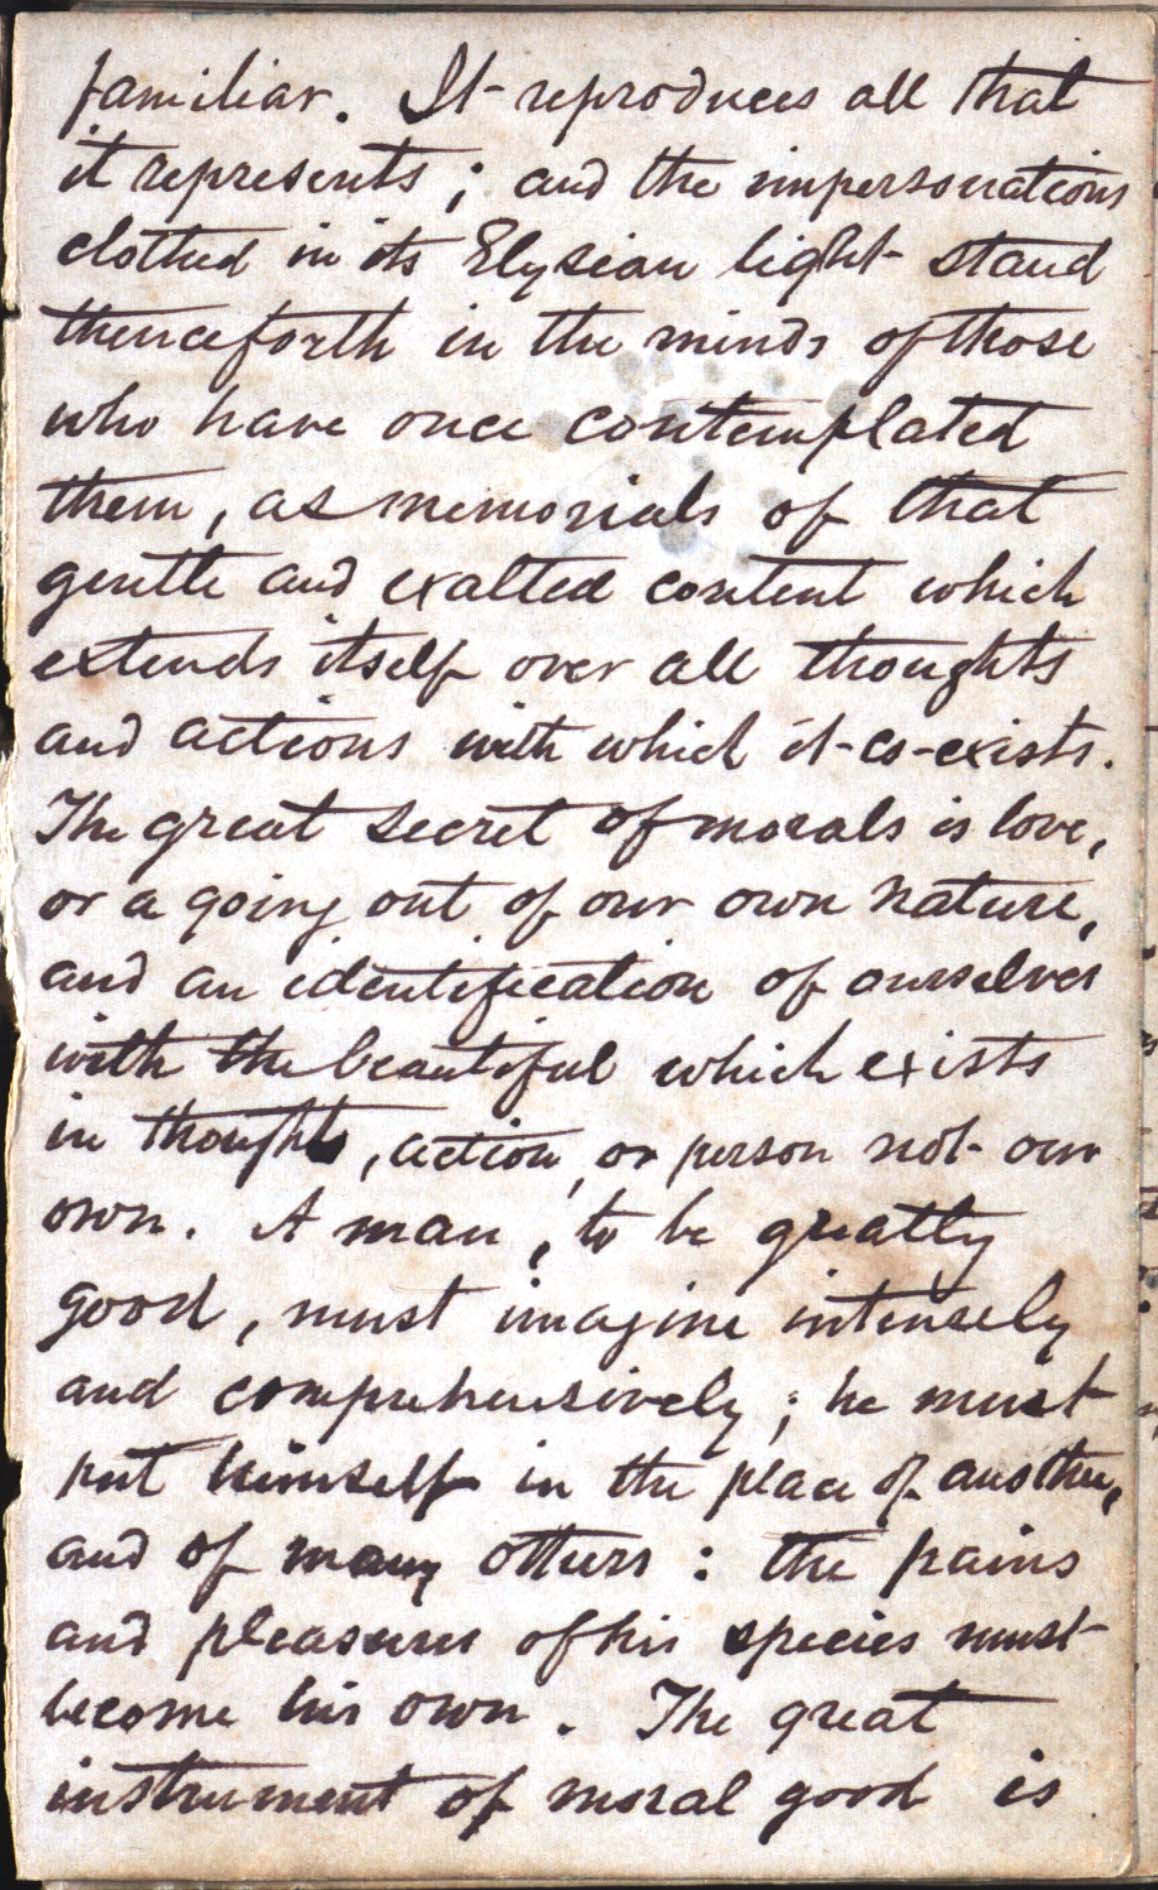 familiar. It reproduces all that
it represents; and the impersonations
clothed in its Elysian light stand
thenceforth in the minds of those
who have once contemplated
them, as memorials of that
gentle and exalted content which
extends itself over all thoughts
and actions with which it co-exists.
The great secret of morals is love,
or a going out of our own nature,
and an identification of ourselves
with the beautiful which exists
in thought, action, or person not our
own. A man, to be greatly
good, must imagine intensely
and comprehensively; he must
put himself in the place of another,
and of many others: the pains
and pleasures of his species must
become his own. The great
instrument of moral good is